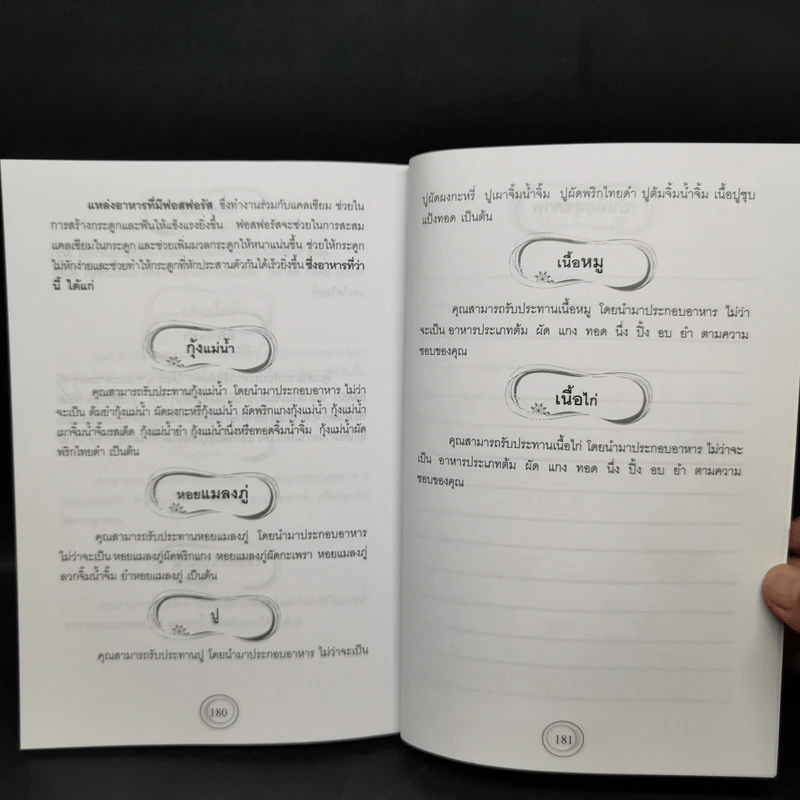 แหล่งอาหารที่มีฟอสฟอรัส ซึ่งทำงานร่วมกับแคลเซียม ช่วยใน
การสร้างกระดูกและฟันให้แข็งแรงยิ่งขึ้น ฟอสฟอรัสจะช่วยในการสะสม
แคลเซียมในกระดูก และช่วยเพิ่มมวลกระดูกให้หนาแน่นขึ้น ช่วยให้กระดูก
ไม่หักง่ายและช่วยทำให้กระดูกที่หักประสานตัวกันได้เร็วยิ่งขึ้น ซึ่งอาหารที่ว่า
นี้ ได้แก่
กุ้งแม่น้ำ
คุณสามารถรับประทานกุ้งแม่น้ำ โดยนำมาประกอบอาหาร ไม่ว่า
จะเป็น ต้มยำกุ้งแม่น้ำ ผัดผงกะหรี่กุ้งแม่น้ำ ผัดพริกแกงกุ้งแม่น้ำ กุ้งแม่น้ำ
เผาจิ้มน้ำจิ้มรสเด็ด กุ้งแม่น้ำยำ กุ้งแม่น้ำนึ่งหรือทอดจิ้มน้ำจิ้ม กุ้งแม่น้ำผัด
พริกไทยดำ เป็นต้น
หอยแมลงภู่
คุณสามารถรับประทานหอยแมลงภู่ โดยนำมาประกอบอาหาร
ไม่ว่าจะเป็น หอยแมลงภู่ผัดพริกแกง หอยแมลงภู่ผัดกะเพรา หอยแมลงภู่
ลวกจิ้มน้ำจิ้ม ยำหอยแมลงภู่ เป็นต้น
ปู
คุณสามารถรับประทานปู โดยนำมาประกอบอาหาร ไม่ว่าจะเป็น
180
ปูผัดผงกะหรี่ ปูเผาจิ้มน้ำจิ้ม ปูผัดพริกไทยดำ ปูต้มจิ้มน้ำจิ้ม เนื้อปูชุบ
แป้งทอด เป็นต้น
เนื้อหมู
คุณสามารถรับประทานเนื้อหมู โดยนำมาประกอบอาหาร ไม่ว่า
จะเป็น อาหารประเภทต้ม ผัด แกง ทอด นึ่ง ปิ้ง อบ ยำ ตามความ
ชอบของคุณ
เนื้อไก่
คุณสามารถรับประทานเนื้อไก่ โดยนำมาประกอบอาหาร ไม่ว่าจะ
เป็น อาหารประเภทต้ม ผัด แกง ทอด นึ่ง ปิ้ง อบ ยำ ตามความ
ชอบของคุณ
181